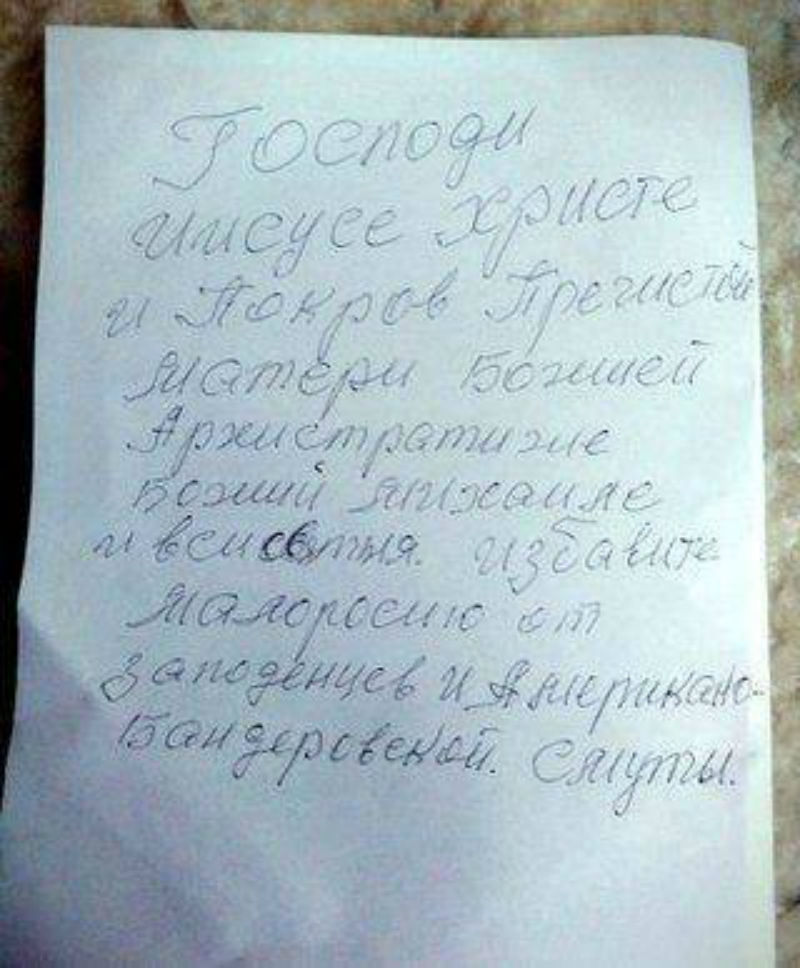 Господи
Иисусе Христе
и Покров Пречистой
Матери Божией
Архистратизие
Божий Михаиле
и вси святыя. Избавите
Малоросию от
заподенцев и Американо-
Бандеровской. Смуты.